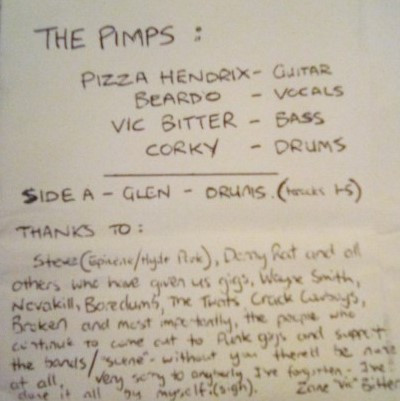 THE PIMPS :
PIZZA HENDRIX - GUITAR
BEARDO - VOCALS
VIC BITTER - BASS
CORKY - DRUMS
SIDE A - GLEN - DRUMS. (tracks 1-5)
THANKS TO :
Steve (Epicene/Hyde Park), Denny Rat and all
others who have given us gigs, Wayne Smith,
Novakill, Boredums, The Twats, Crack Cowboys,
Broken and most importantly, the people who
continue to come out to Punk gigs and support
the bands/"scene" - without you there'll be none
at all. Very sorry to anybody I've forgotten - I've
done it all by myself. (sigh). Zane "Vic" Bitter